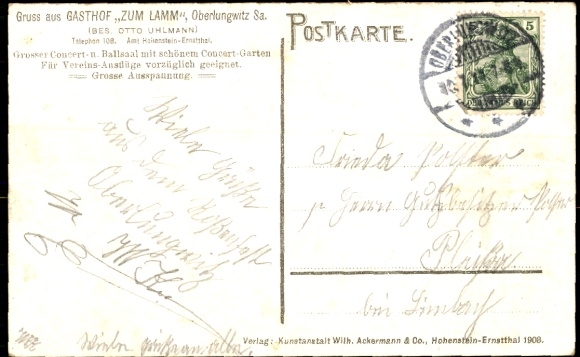 Gruss aus GASTHOF „ZUM LAMM“, Oberlungwitz Sa.
(BES. OTTO UHLMANN)
Telephon 108. Amt Hohenstein-Ernstthal.
Grosser Concert- u. Ballsaal mit schönem Concert-Garten
Für Vereins-Ausflüge vorzüglich geeignet.
Grosse Ausspannung.
POSTKARTE.
5
DEUTSCHES REICH
Viele Grüße
aus dem
Oberlungwitz
Frieda Polster
Herrn Gutsbesitzer Polster
Pleißa
bei Limbach
Viele Grüße an alle
Verlag: Kunstanstalt Wilh. Ackermann & Co., Hohenstein-Ernstthal 1908.